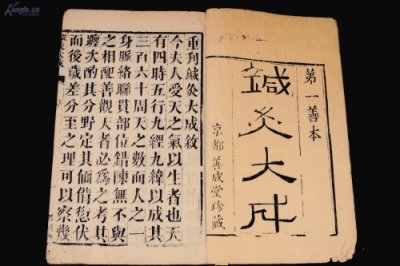 第一善本
鍼灸大成
京都善成堂珍藏
重刋鍼灸大成敘
今夫人受天之氣以生者也天
有四時五行九經九緯以成其
三百六十周天之數而人之一
身脈絡聯貫部位錯陳無不與
之相配善觀天者必爲之考其
躔次酌其分野定其愆伏
而後歲差分至之理可以察幾